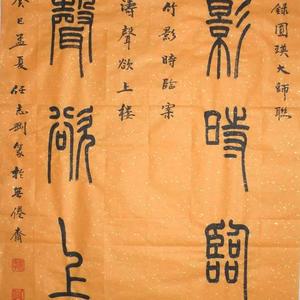 錄圓瑛大師聯
影時臨
竹影時臨案
濤聲欲上樓
聲欲上
癸巳孟夏任志剛篆於無倦齋